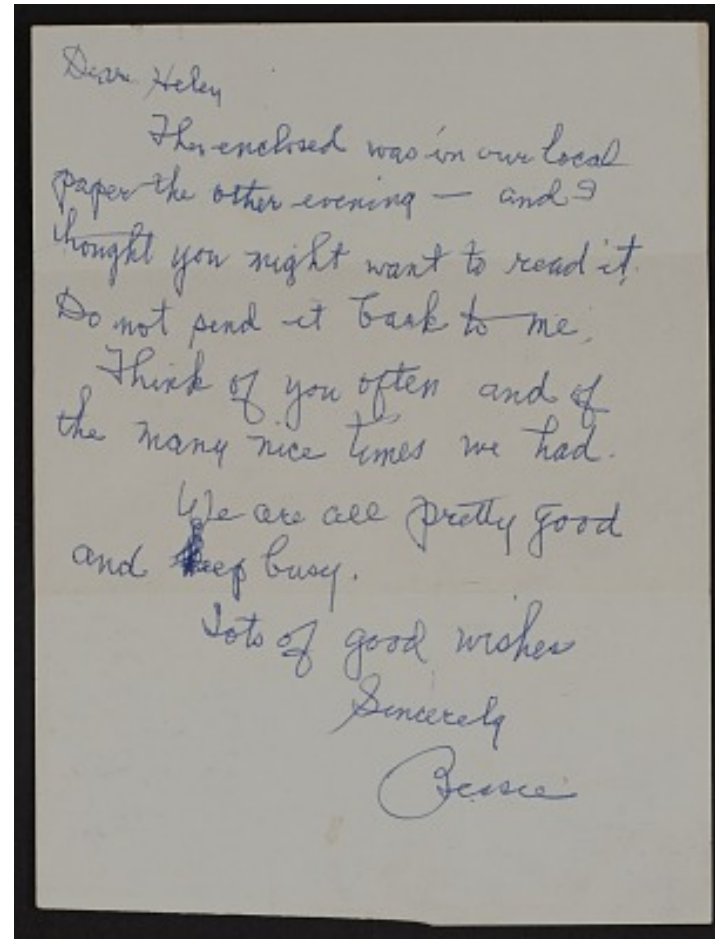 Dear Helen
The enclosed was in our local
paper the other evening — and I
thought you might want to read it.
Do not send it back to me.
Think of you often and of
the many nice times we had.
We are all pretty good
and keep busy.
Lots of good wishes
Sincerely
Bessie